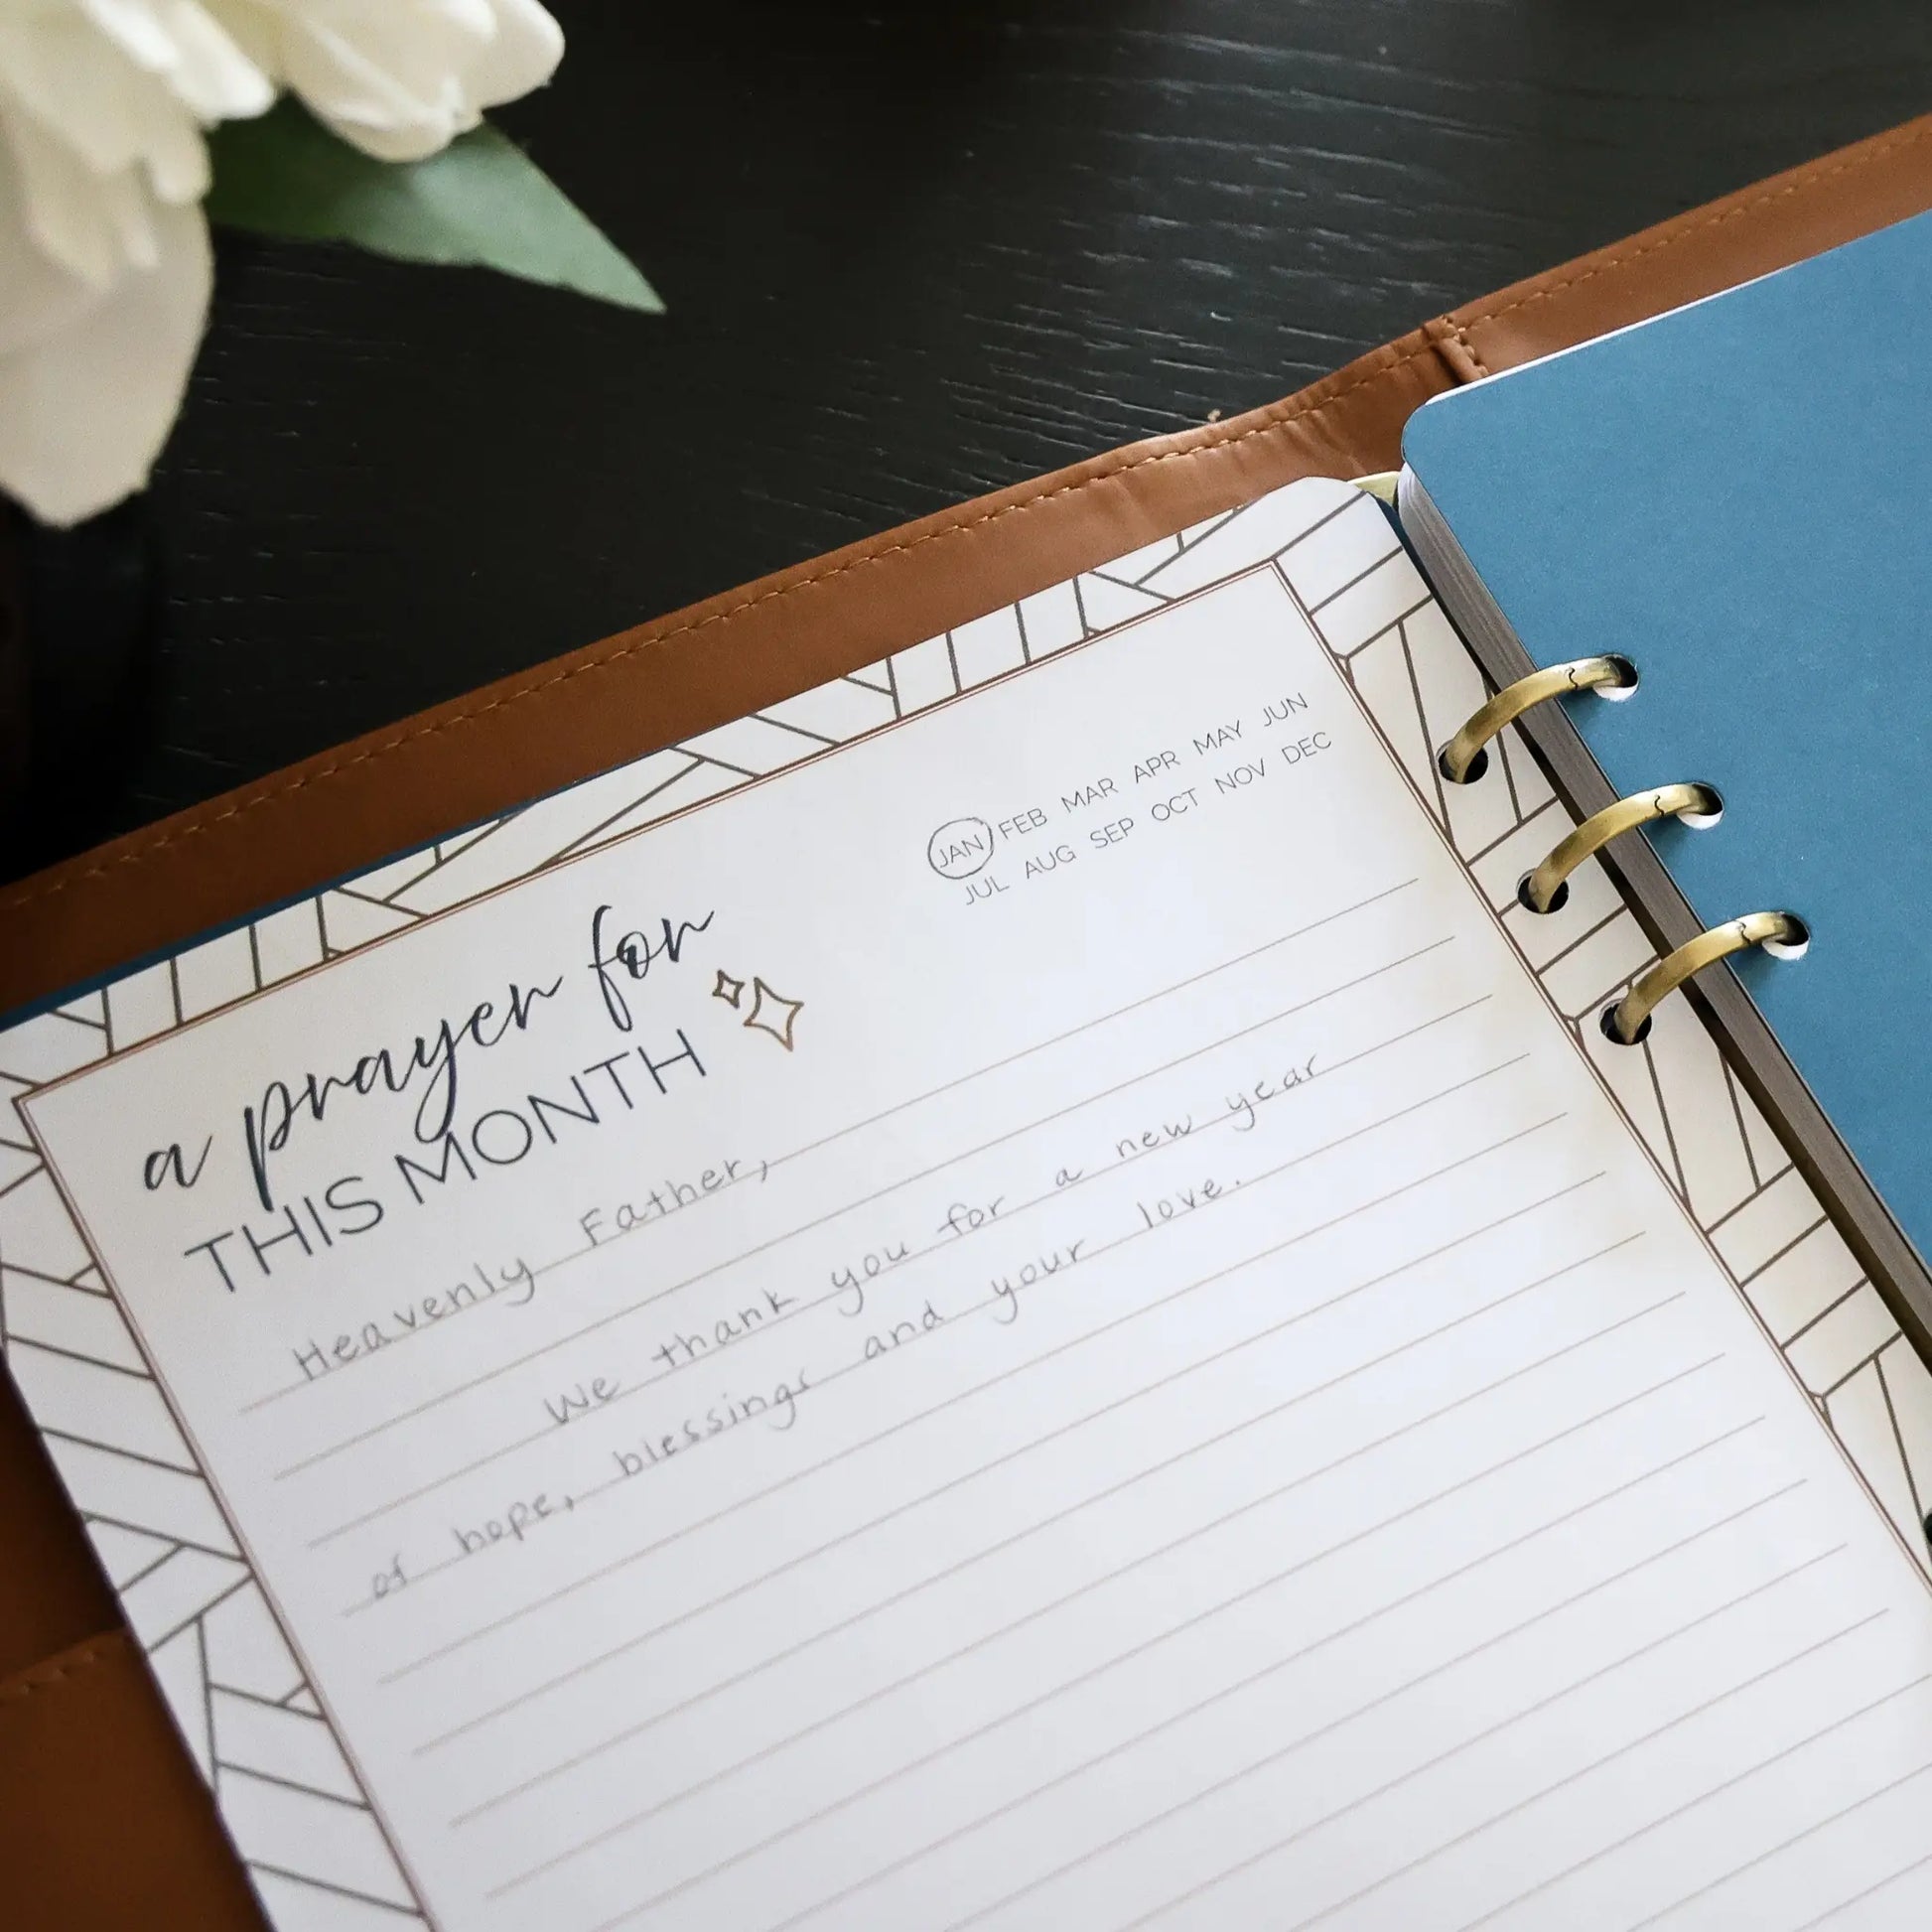 JAN FEB MAR APR MAY JUN
JUL AUG SEP OCT NOV DEC
a prayer for
THIS MONTH
Heavenly Father,
We thank you for a new year
of hope, blessings and your love.